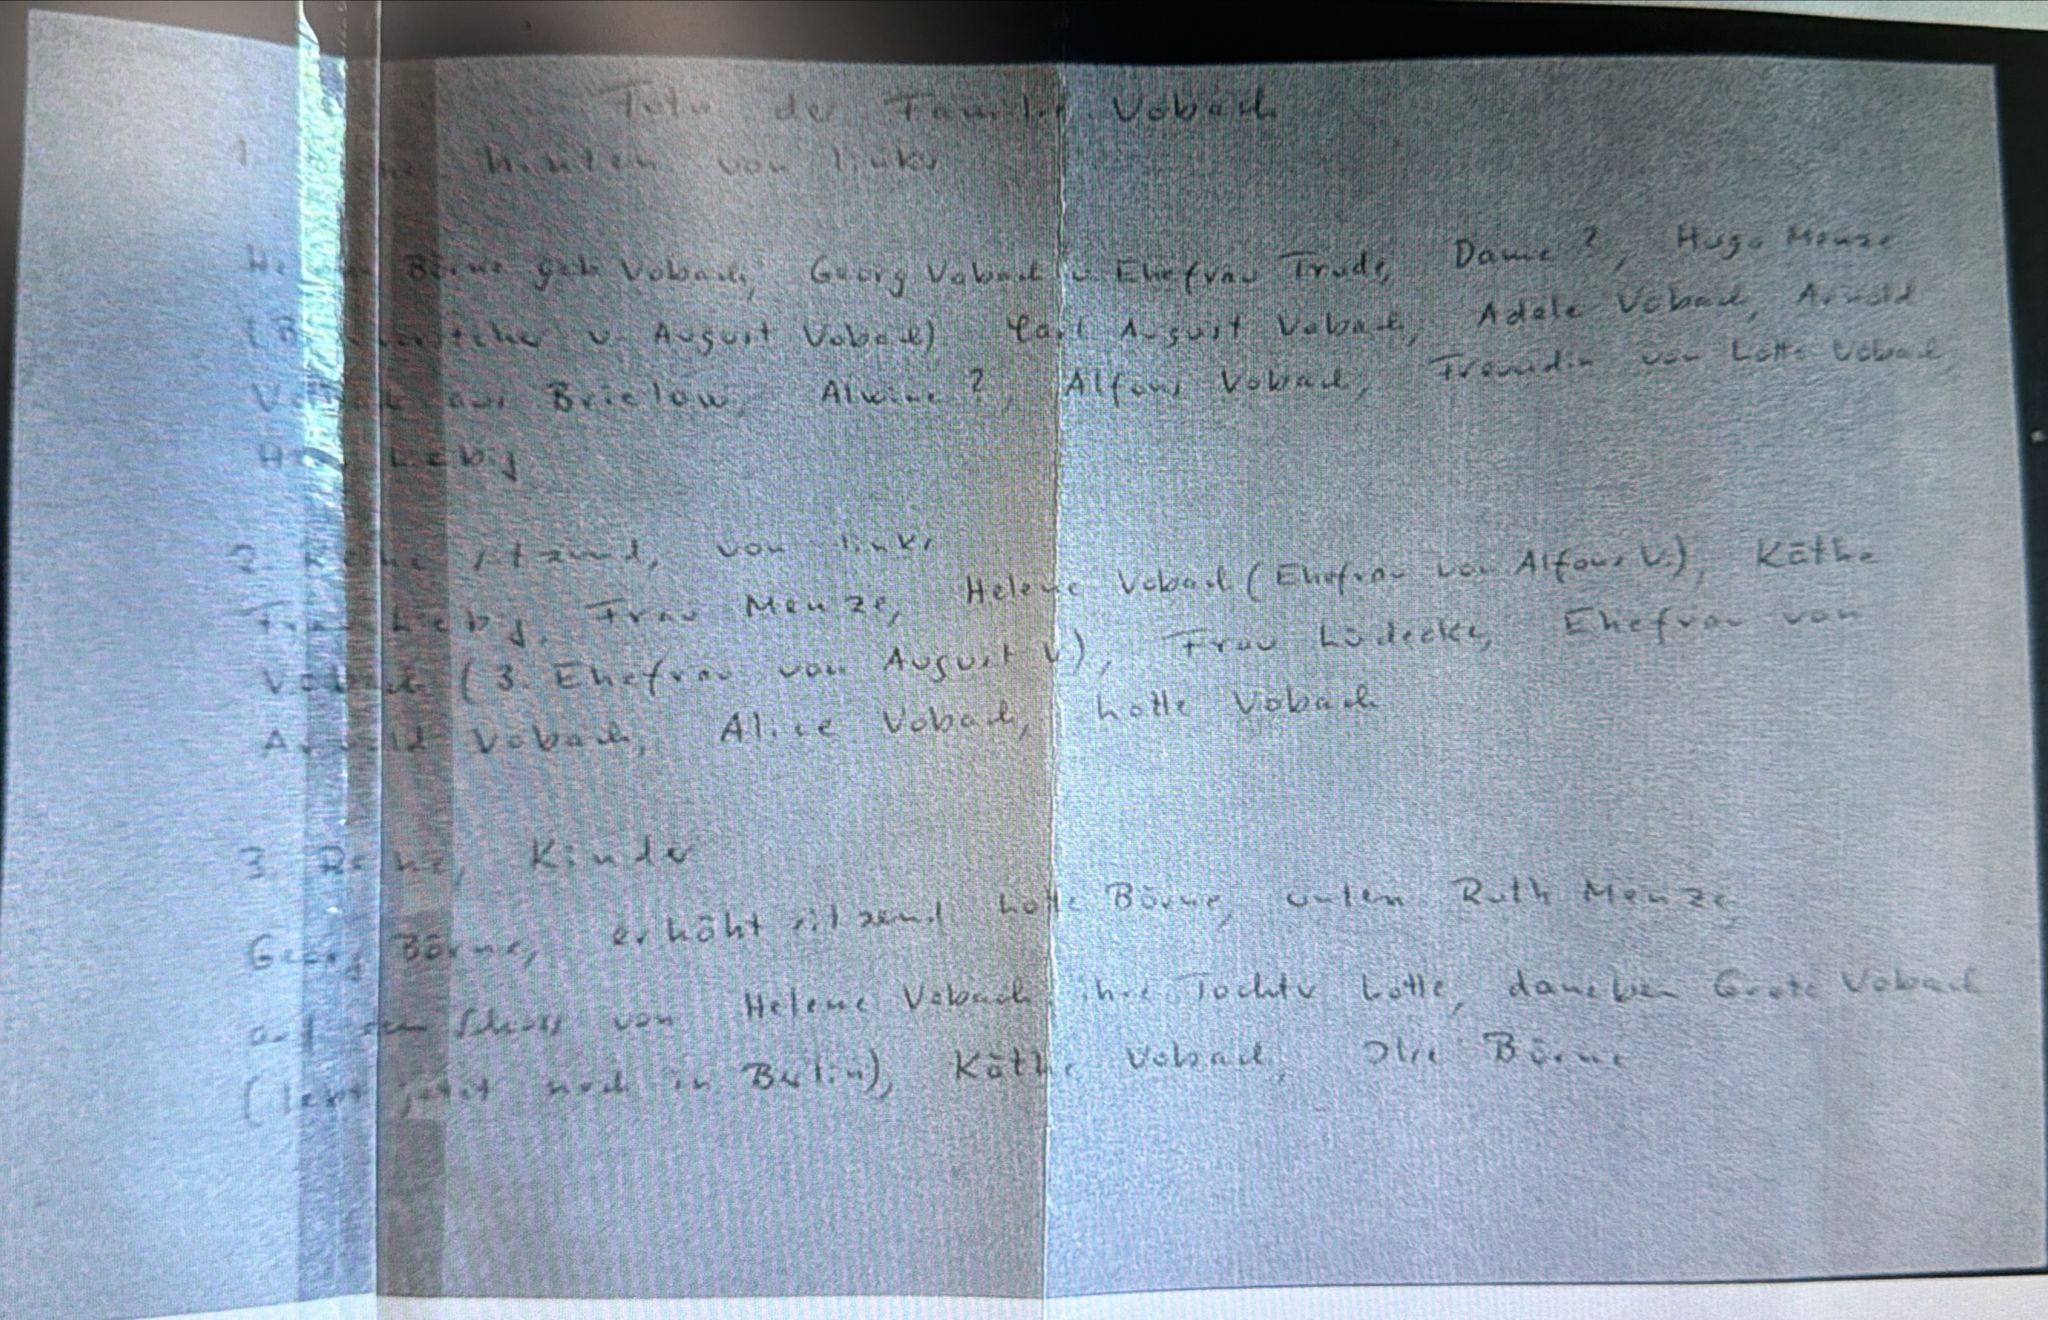 Foto der Familie Vobach
1. hinten von links
Börne geb Vobach, Georg Vobach u Ehefrau Trude, Dame ?, Hugo Menze
v. August Vobach) Carl August Vobach, Adele Vobach, Arnold
Vobach aus Brielow, Alwine ?, Alfons Vobach, Freundin von Lotte Vobach,
Herr Lebij
2. Reihe sitzend, von links
Frau Lebij, Frau Menze, Helene Vobach (Ehefrau von Alfons V.), Käthe
Vobach (3. Ehefrau von August V), Frau Lüdecke, Ehefrau von
Arnold Vobach, Alice Vobach, Lotte Vobach
3 Reihe, Kinder
Georg Börne, erhöht sitzend Lotte Börne, unten Ruth Menze,
auf dem Schoss von Helene Vobach ihre Tochter Lotte, daneben Grete Vobach
(lebt jetzt noch in Berlin), Käthe Vobach, Ilse Börne